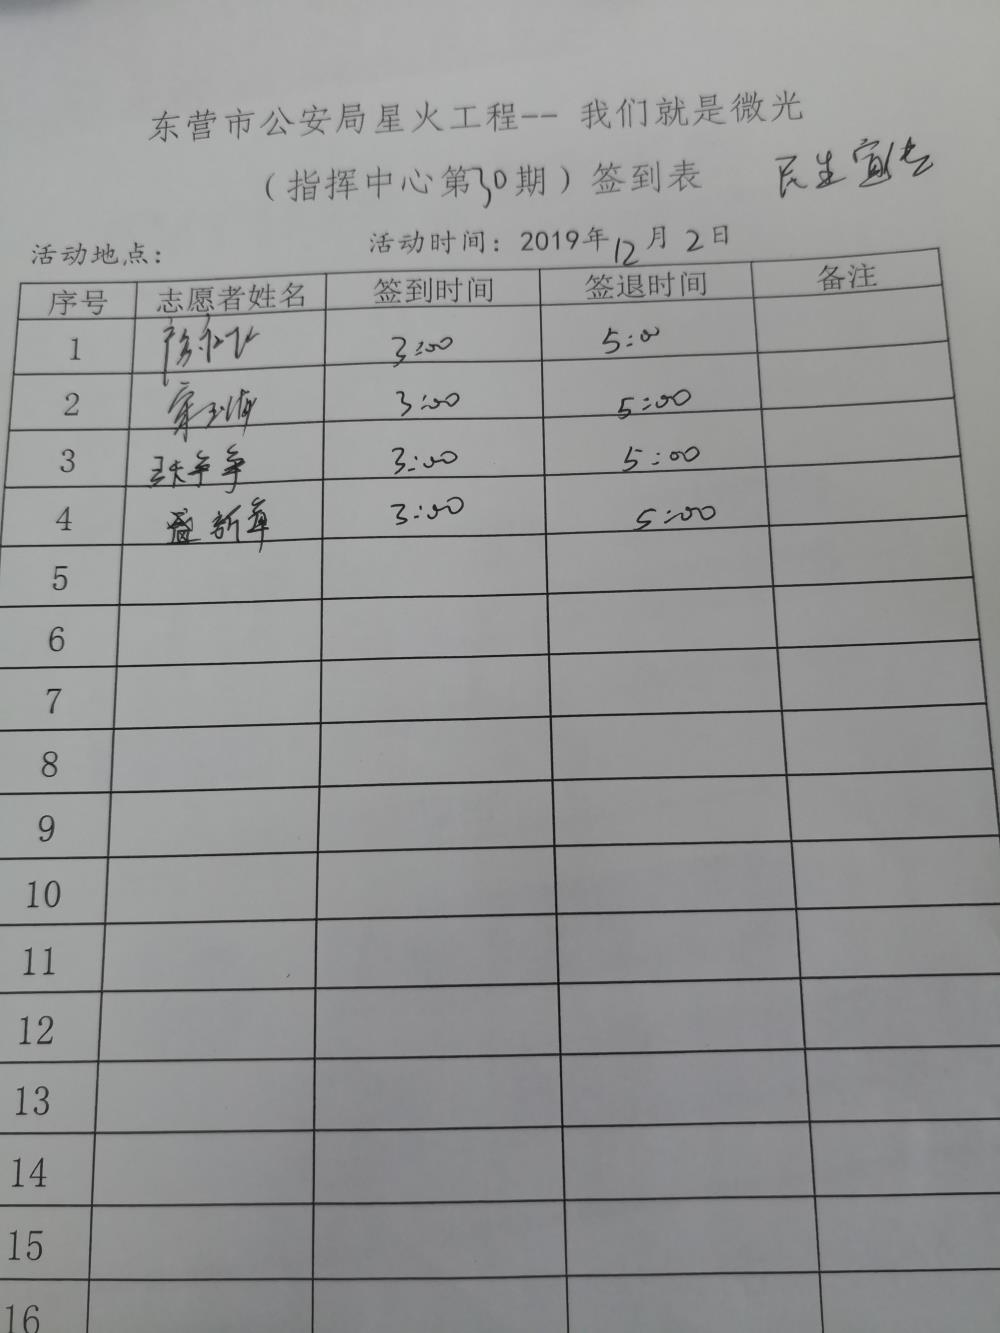 东营市公安局星火工程-- 我们就是微光
（指挥中心第30期）签到表 民生宣传
活动地点： 活动时间：2019年12月2日
序号 志愿者姓名 签到时间 签退时间 备注
1 3:00 5:00
2 3:00 5:00
3 3:00 5:00
4 新军 3:00 5:00
5
6
7
8
9
10
11
12
13
14
15
16